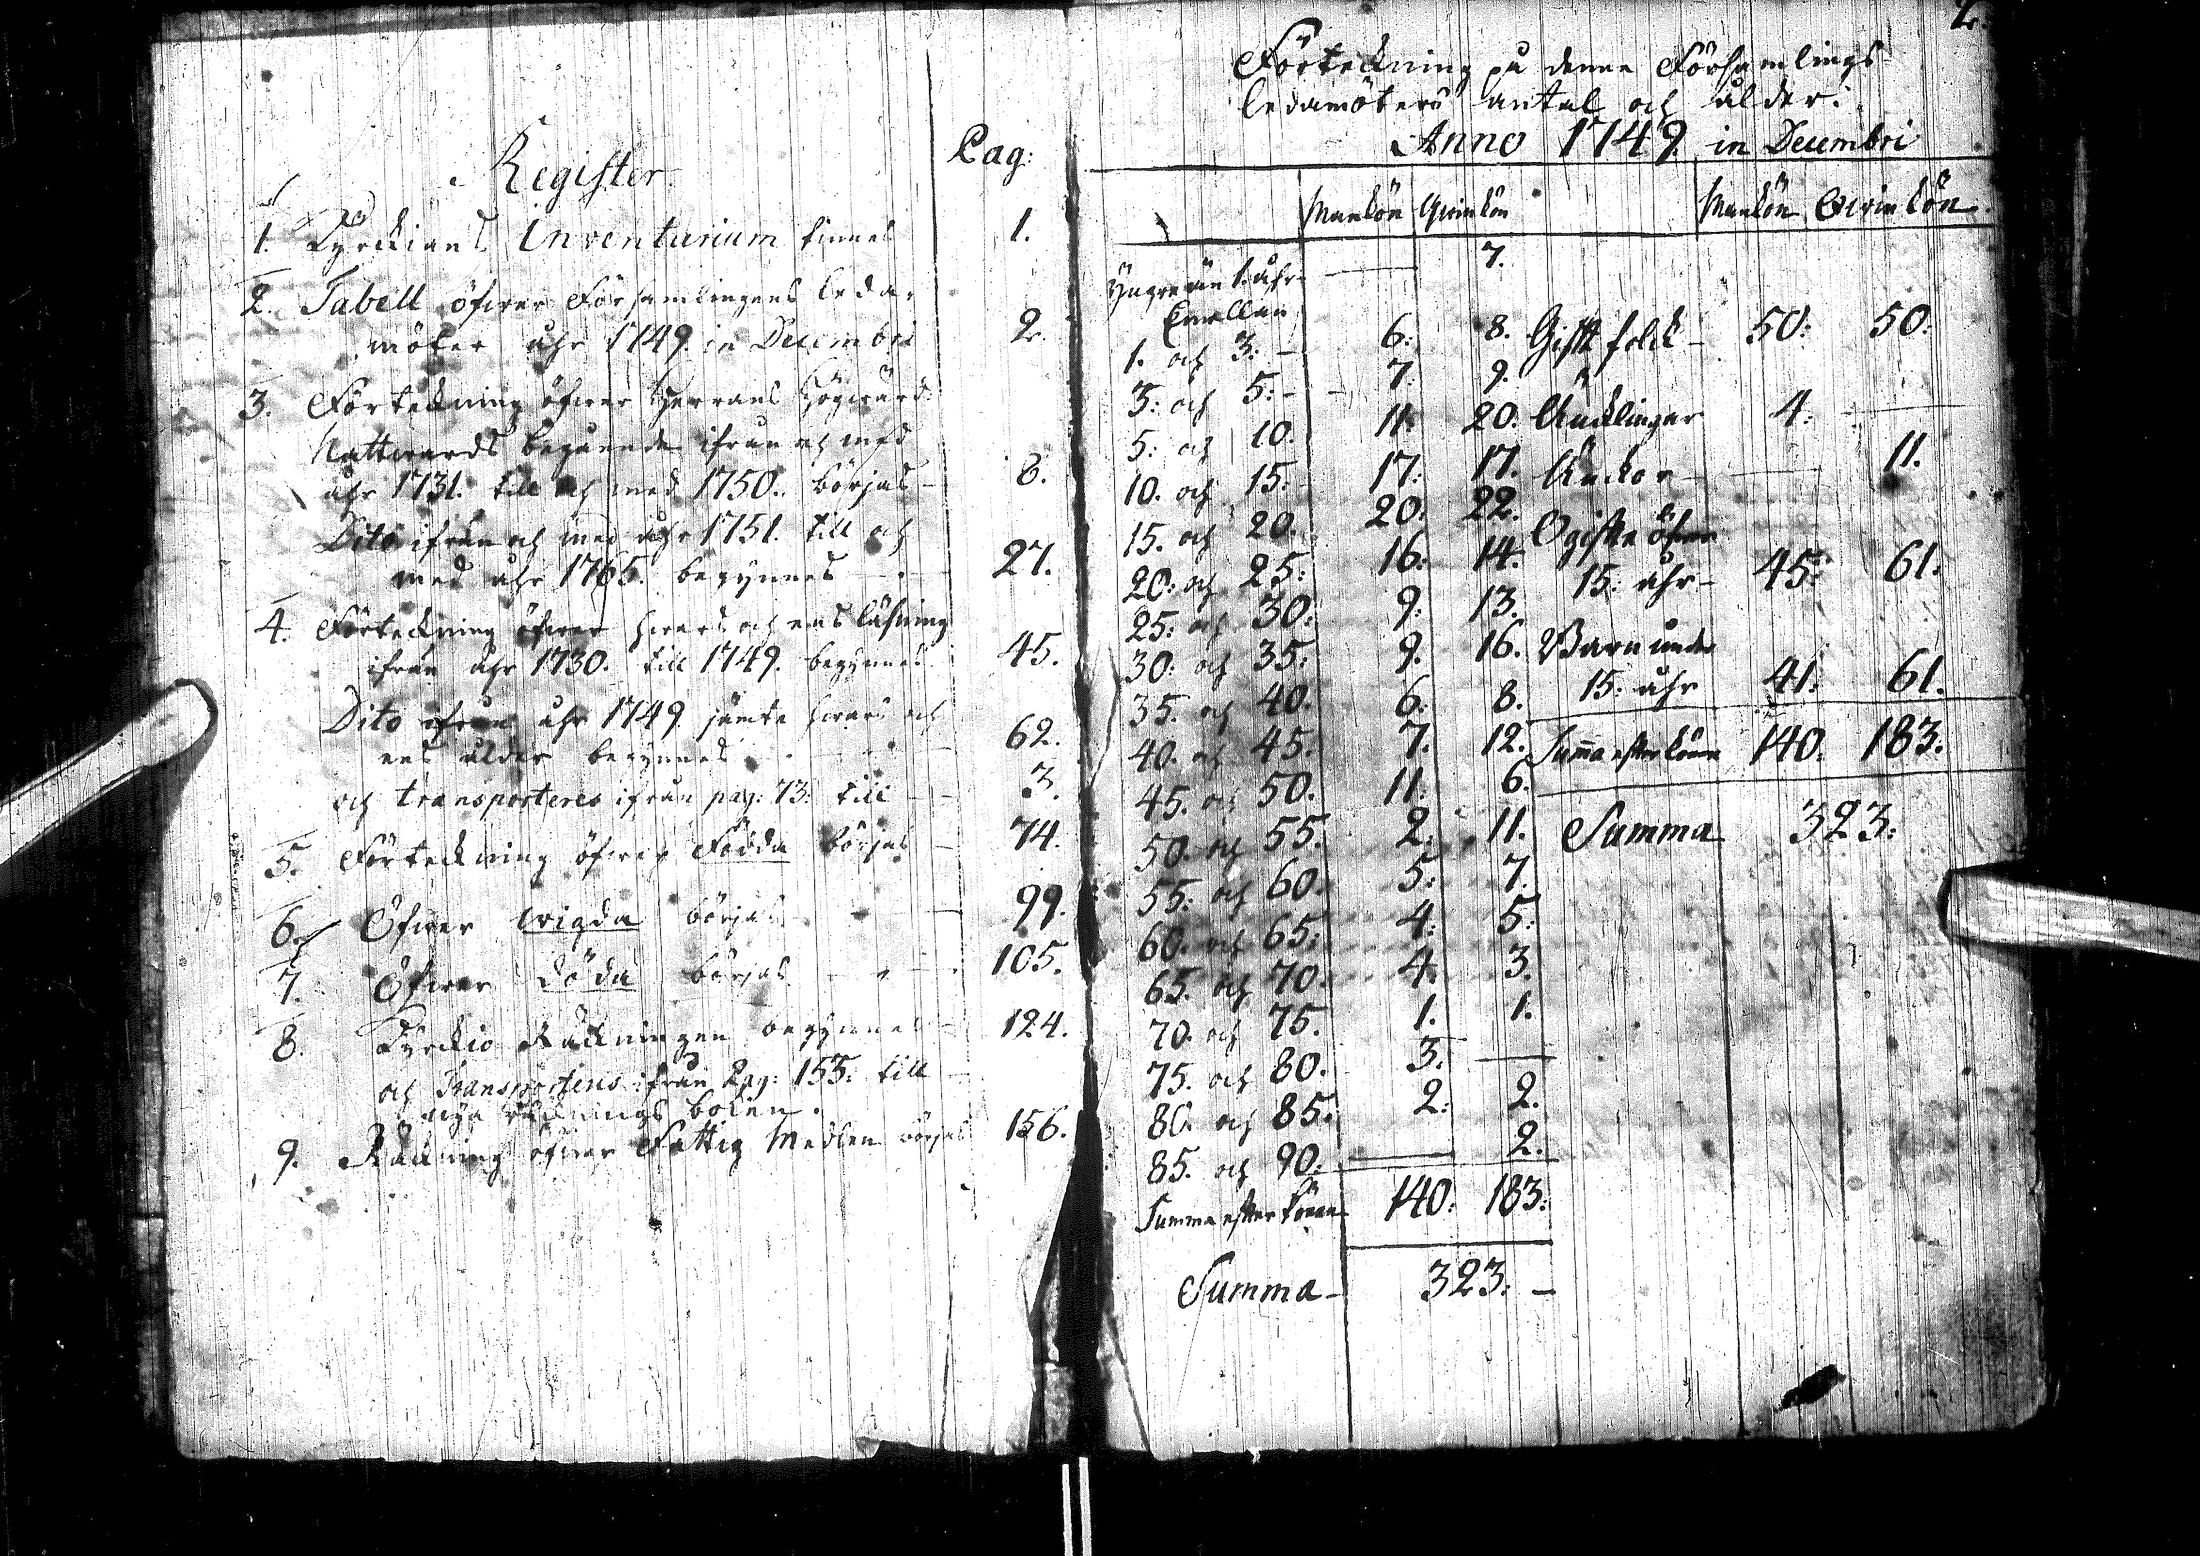 Register
Pag:
1. Kyrckians Inventarium finnes 1.
2. Tabell öfwer Församlingens leda-
möter åhr 1749. in Decembri 2.
3. Förteckning öfwer Herrans Högwürd:
Nattwards begående ifrån och med
åhr 1731. till och med 1750. börjas – 8.
Dito ifrån och med åhr 1751. till och
med åhr 1765. begynnes – 27.
4. Förteckning öfwer hwars och ens läsning
ifrån åhr 1730. till 1749. begynnes 45.
Dito ifrån åhr 1749 jämte hwars och
ens ålder begynnes 62.
och transporteres ifrån pag: 73: till – 3.
5. Förteckning öfwer Födda börjas – 74.
6. Öfwer Wigda börjas – 99.
7. Öfwer Döda börjas – 105.
8. Kyrckio Räckningen begynnes – 124.
och Transporteres ifrån Pag: 155: till
nya räcknings boken.
9. Räckning öfwer Fattig Medlen börjas 156.
2.
Förteckning på denne Församlings
ledamöters antal och ålder.
Anno 1749. in Decembri
Mankön Qwinkön Mankön Qwinkön
Yngre än 1. åhr – 7.
Emellan
1. och 3. – 6. 8. Gift folck – 50: 50:
3: och 5: – 7. 9.
5: och 10. 11. 20. Äncklingar 4: –
10. och 15: 17: 17. Änckor – 11.
15. och 20. 20. 22. Ogifte öfwer
20: och 25: 16: 14. 15: åhr – 45: 61:
25: och 30: 9: 13.
30: och 35: 9. 16. Barn under
35. och 40. 6. 8. 15: åhr 41: 61.
40. och 45. 7. 12. Summa efter könen 140. 183.
45. och 50. 11. 6.
50. och 55. 2. 11. Summa 323:
55: och 60. 5: 7.
60. och 65: 4: 5:
65. och 70. 4. 3.
70. och 75. 1. 1.
75. och 80. 3. –
80. och 85. 2: 2.
85. och 90: – 2.
Summa efter könen 140: 183:
Summa – 323: –